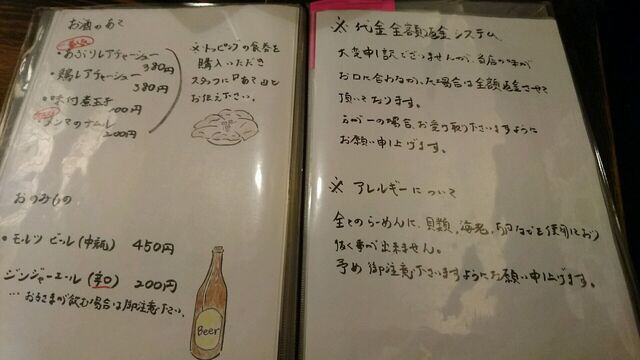 お酒のあて
・あぶりレアチャーシュー
380円
・鶏レアチャーシュー
380円
・味付煮玉子
100円
・メンマのナムル
200円
※トッピングの食券を
購入いただき
スタッフに「あて」と
お伝え下さい。
おのみもの
・モルツ ビール(中瓶) 450円
ジンジャーエール(辛口) 200円
…お子さまが飲む場合は御注意下さい。
Beer
※ 代金全額返金システム
大変申し訳ございませんが、当店の味が
お口に合わなかった場合は全額返金させて
頂いております。
万が一の場合、お受け取り下さいますように
お願い申し上げます。
※ アレルギーについて
全てのらーめんに、貝類、海老、卵などを使用しており
抜く事が出来ません。
予め御注意下さいますようにお願い申し上げます。